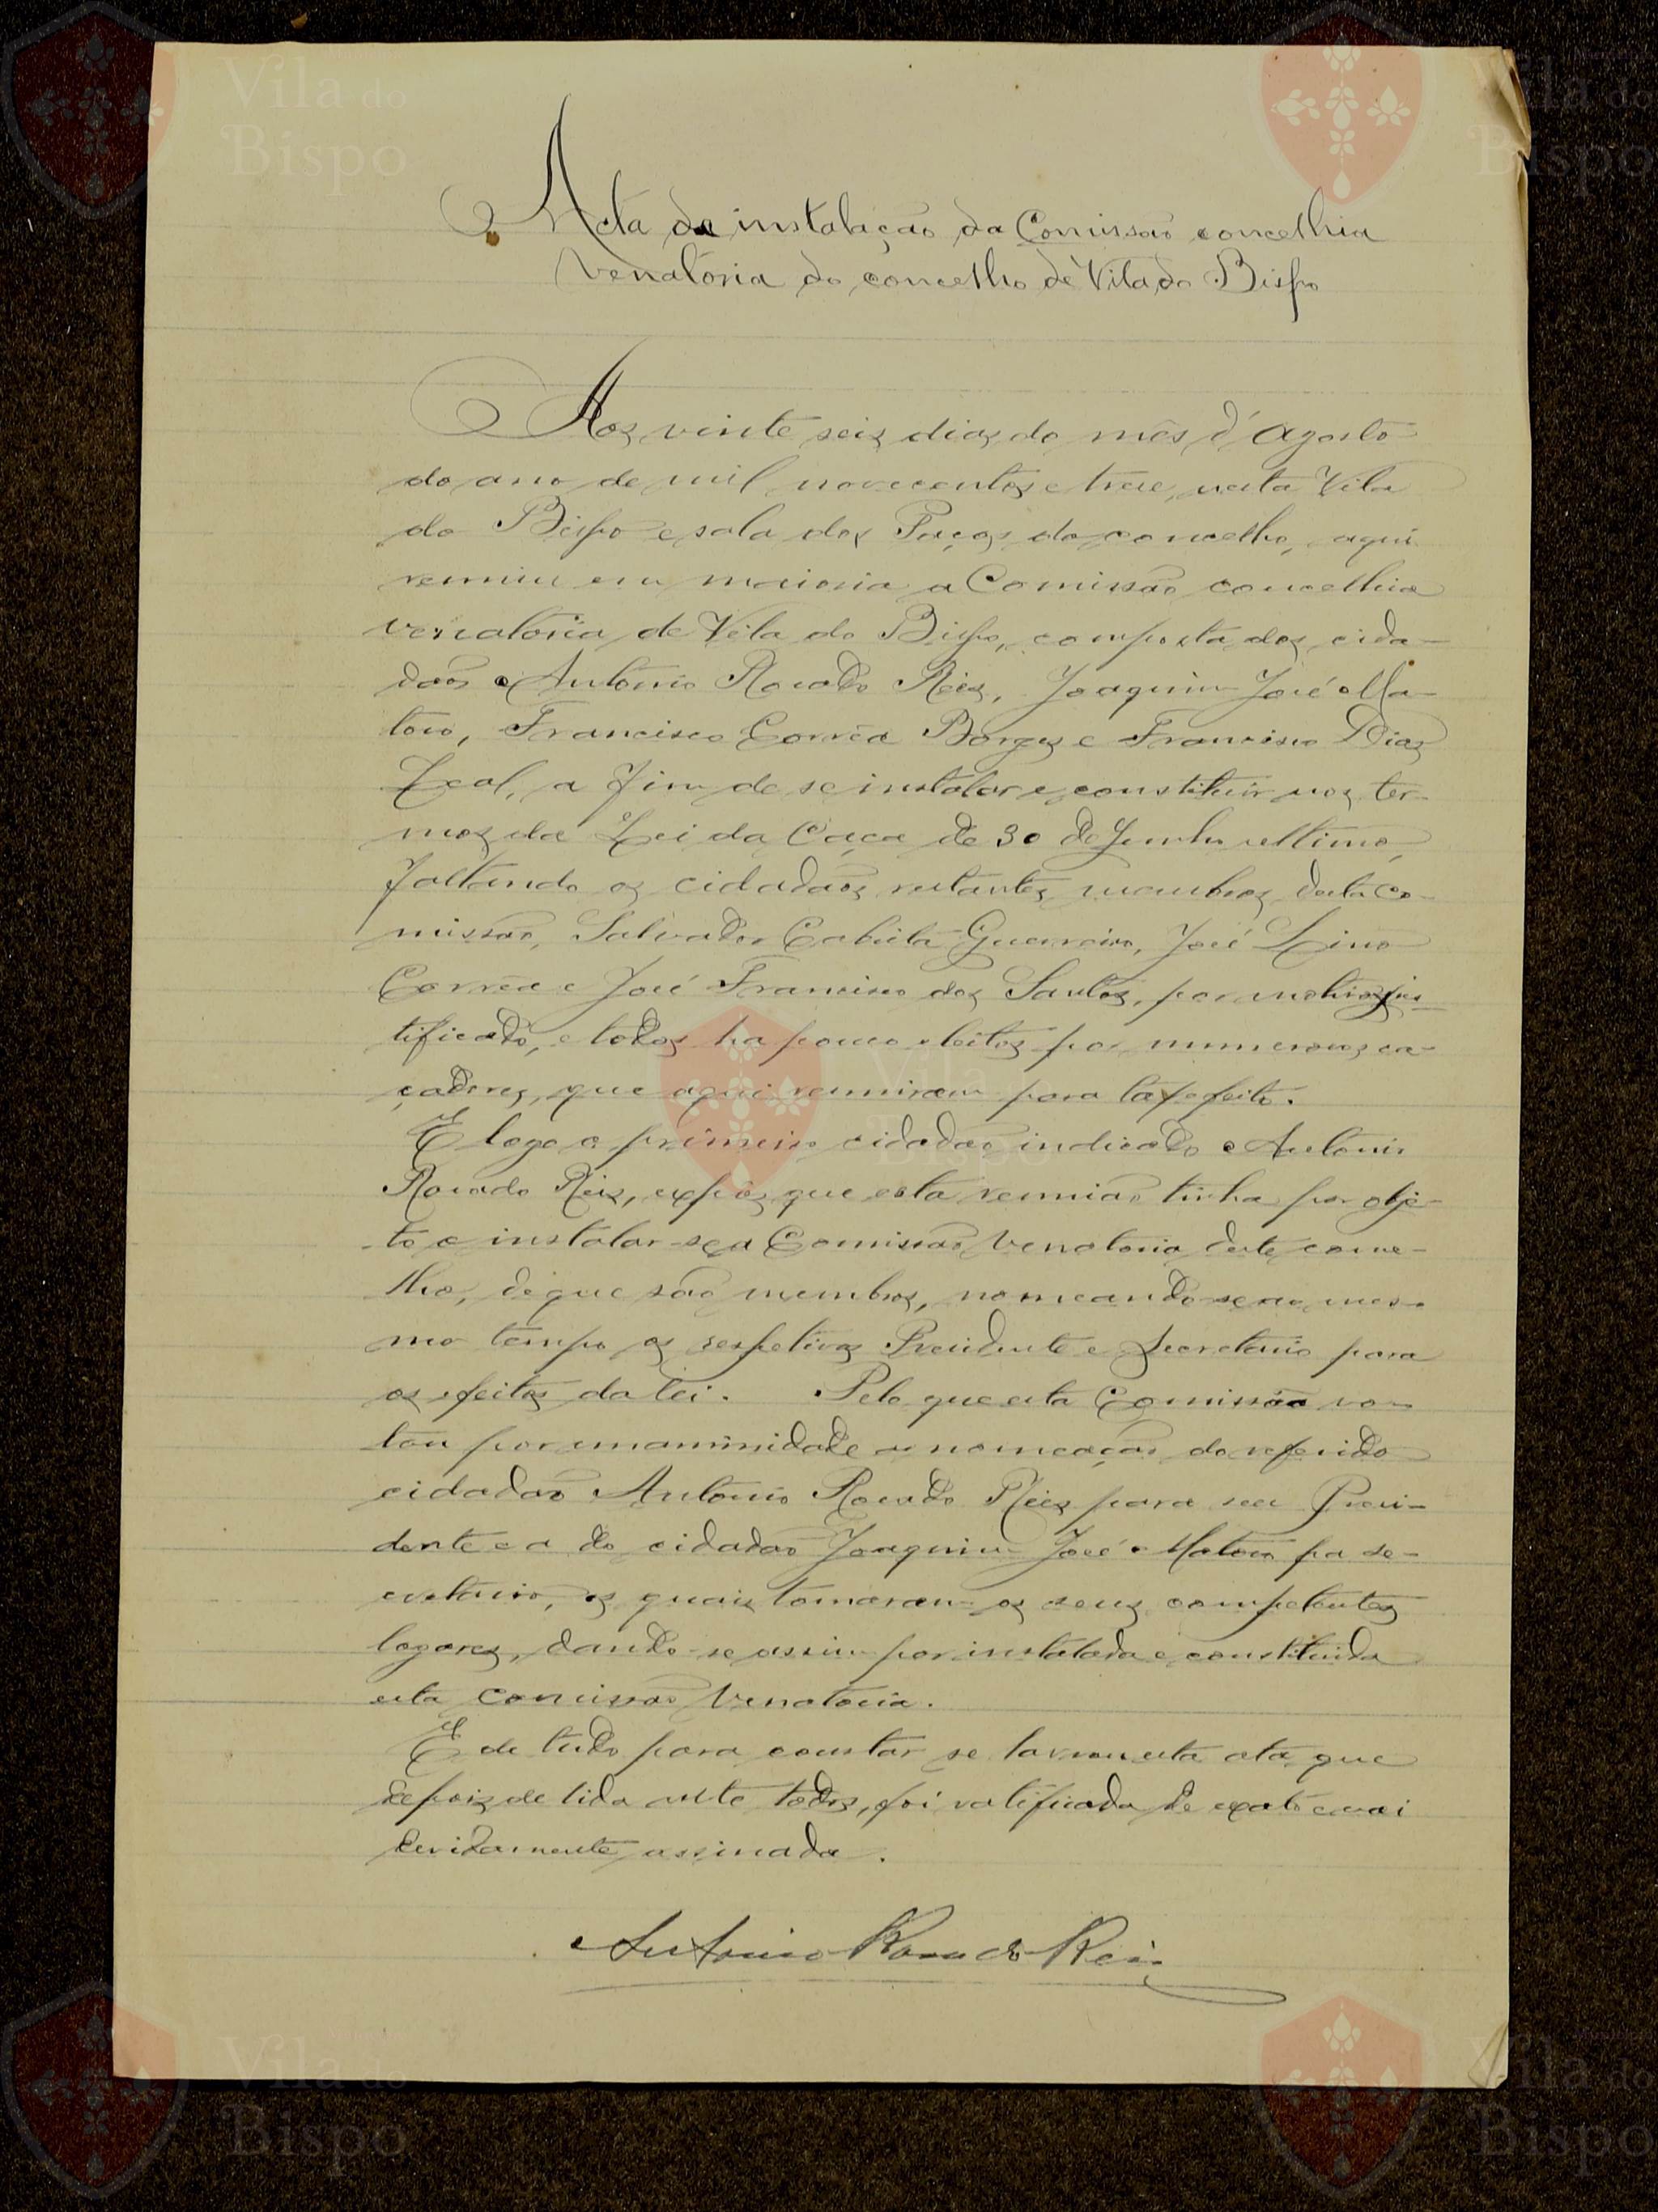 Acta da instalação da Comissão concelhia
venatoria do concelho de Vila do Bispo
Aos vinte seis dias do mês d'Agosto
do ano de mil novecentos e treze, nesta Vila
do Bispo e sala dos Paços do concelho, aqui
reuniu em maioria a Comissão concelhia
venatoria de Vila do Bispo, composta dos cida-
dãos Antonio Rocado Reis, Joaquim José Ma-
toso, Francisco Corrêa Borges e Francisco Dias
Leal, a fim de se instalar e constituir nos ter-
mos da Lei da Caça de 30 de Junho ultimo,
faltando os cidadãos restantes membros desta co-
missão, Salvador Cabrita Guerreiro, José Lino
Corrêa e José Francisco dos Santos, por motivo jus-
tificado, e todos ha pouco eleitos por numerosos ca-
çadores, que aqui reuniram para tal efeito.
E logo o primeiro cidadão indicado Antonio
Rocado Reis, expôs que esta reunião tinha por obje-
to o instalar-se a Comissão Venatoria deste conce-
lho, de que são membros, nomeando-se ao mes-
mo tempo os respetivos Presidente e Secretario para
os efeitos da lei. Pelo que esta Comissão vo-
tou por unanimidade a nomeação do referido
cidadão Antonio Rocado Reis para seu Presi-
dente e a do cidadão Joaquim José Matoso pa se-
cretario, os quais tomaram os seus competentes
logares, dando-se assim por instalada e constituida
esta comissão Venatoria.
E de tudo para constar se lavrou esta ata que
depois de lida ante todos, foi ratificada de exato e vai
devidamente assinada.
Antonio Rocado Reis
Vila do
Bispo
Vila do
Bispo
Vila do
Bispo
Vila do
Bispo
Vila do
Bispo